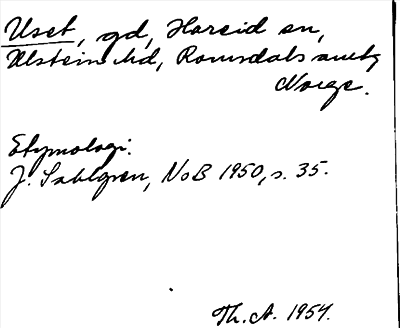 Uset, gd, Hareid sn,
Ulstein hd, Romsdals amt,
Norge.
Etymologi.
J. Sahlgren, NoB 1950, s. 35.
Th. A. 1954.